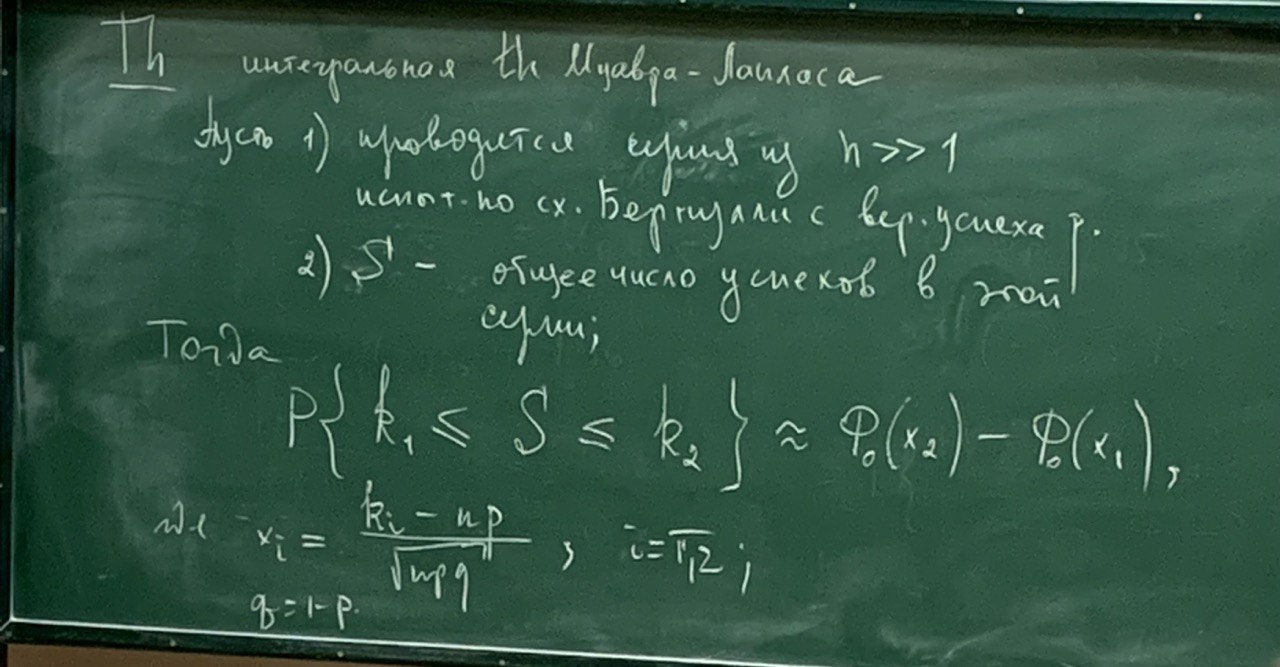 Th интегральная th Муавра-Лапласа
Пусть 1) проводится серия из n >> 1
испыт. по сх. Бернулли с вер. успеха p.
2) S - общее число успехов в этой
серии;
Тогда
P{ k₁ ≤ S ≤ k₂ } ≈ Φ₀(x₂) - Φ₀(x₁),
где xᵢ = (kᵢ - np)/√(npq), i = \overline{1,2};
q = 1 - p.